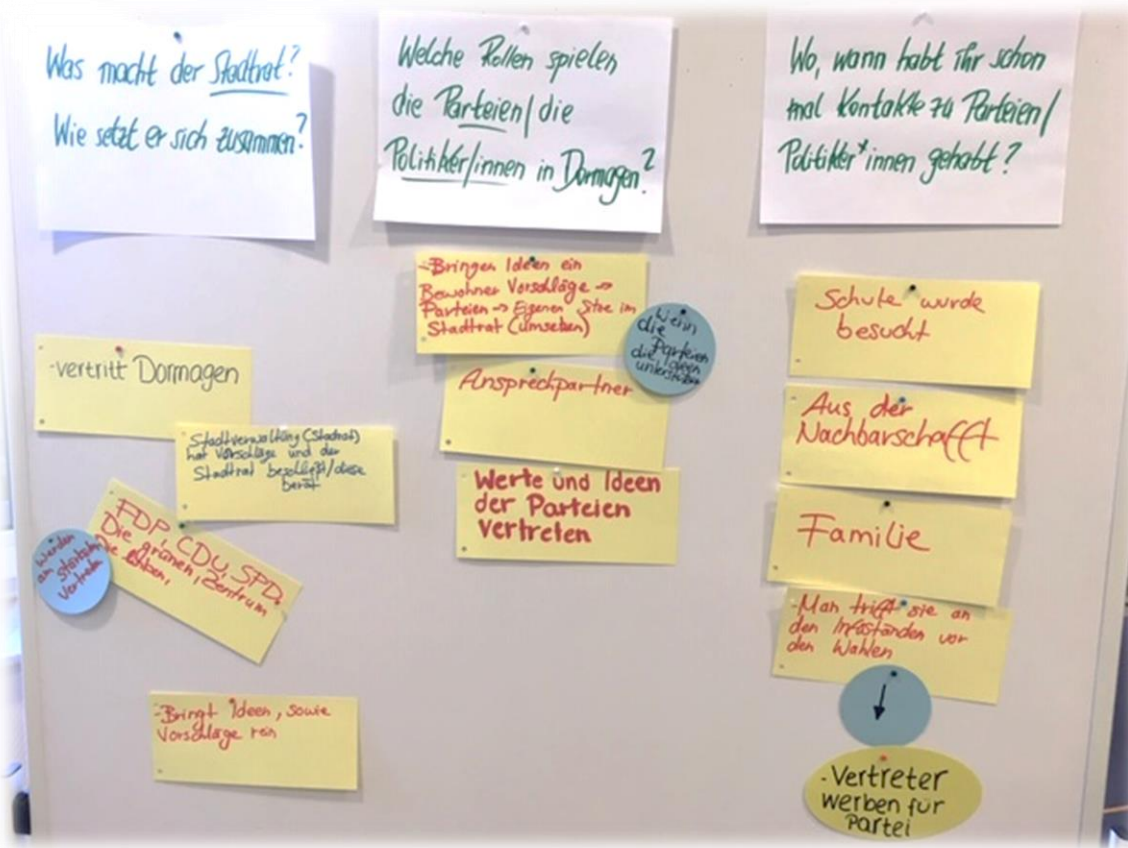 Was macht der Stadtrat?
Wie setzt er sich zusammen?
-vertritt Dormagen
Stadtverwaltung (Stadtrat)
hat Vorschläge und der
Stadtrat beschließt/diese
berät
FDP, CDU, SPD,
Die grünen, Zentrum
Die
werden
am
vertreten
-Bringt Ideen, sowie
Vorschläge rein
Welche Rollen spielen
die Parteien/die
Politiker/innen in Dormagen?
-Bringen Ideen ein
Bewohner Vorschläge ->
Parteien -> Eigenen Sitze im
Stadtrat (umsetzen)
Wenn
die
Parteien
die Ideen
unterstützen
Ansprechpartner
Werte und Ideen
der Parteien
vertreten
Wo, wann habt ihr schon
mal Kontakte zu Parteien/
Politiker*innen gehabt?
Schule wurde
besucht
Aus der
Nachbarschafft
Familie
-Man trifft sie an
den Infoständen vor
den Wahlen
↓
-Vertreter
werben für
Partei